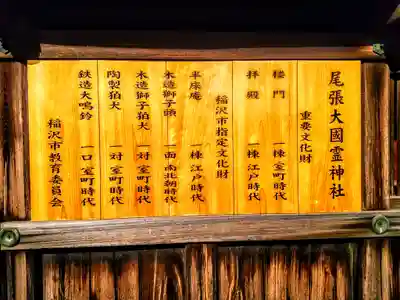 尾張大國霊神社
重要文化財
楼門 一棟 室町時代
拝殿 一棟 江戸時代
稲沢市指定文化財
平座庵 一棟 江戸時代
木造獅子頭 一面 南北朝時代
木造獅子狛犬 一対 室町時代
陶製狛犬 一対 室町時代
鉄造大鳴鈴 一口 室町時代
稲沢市教育委員会